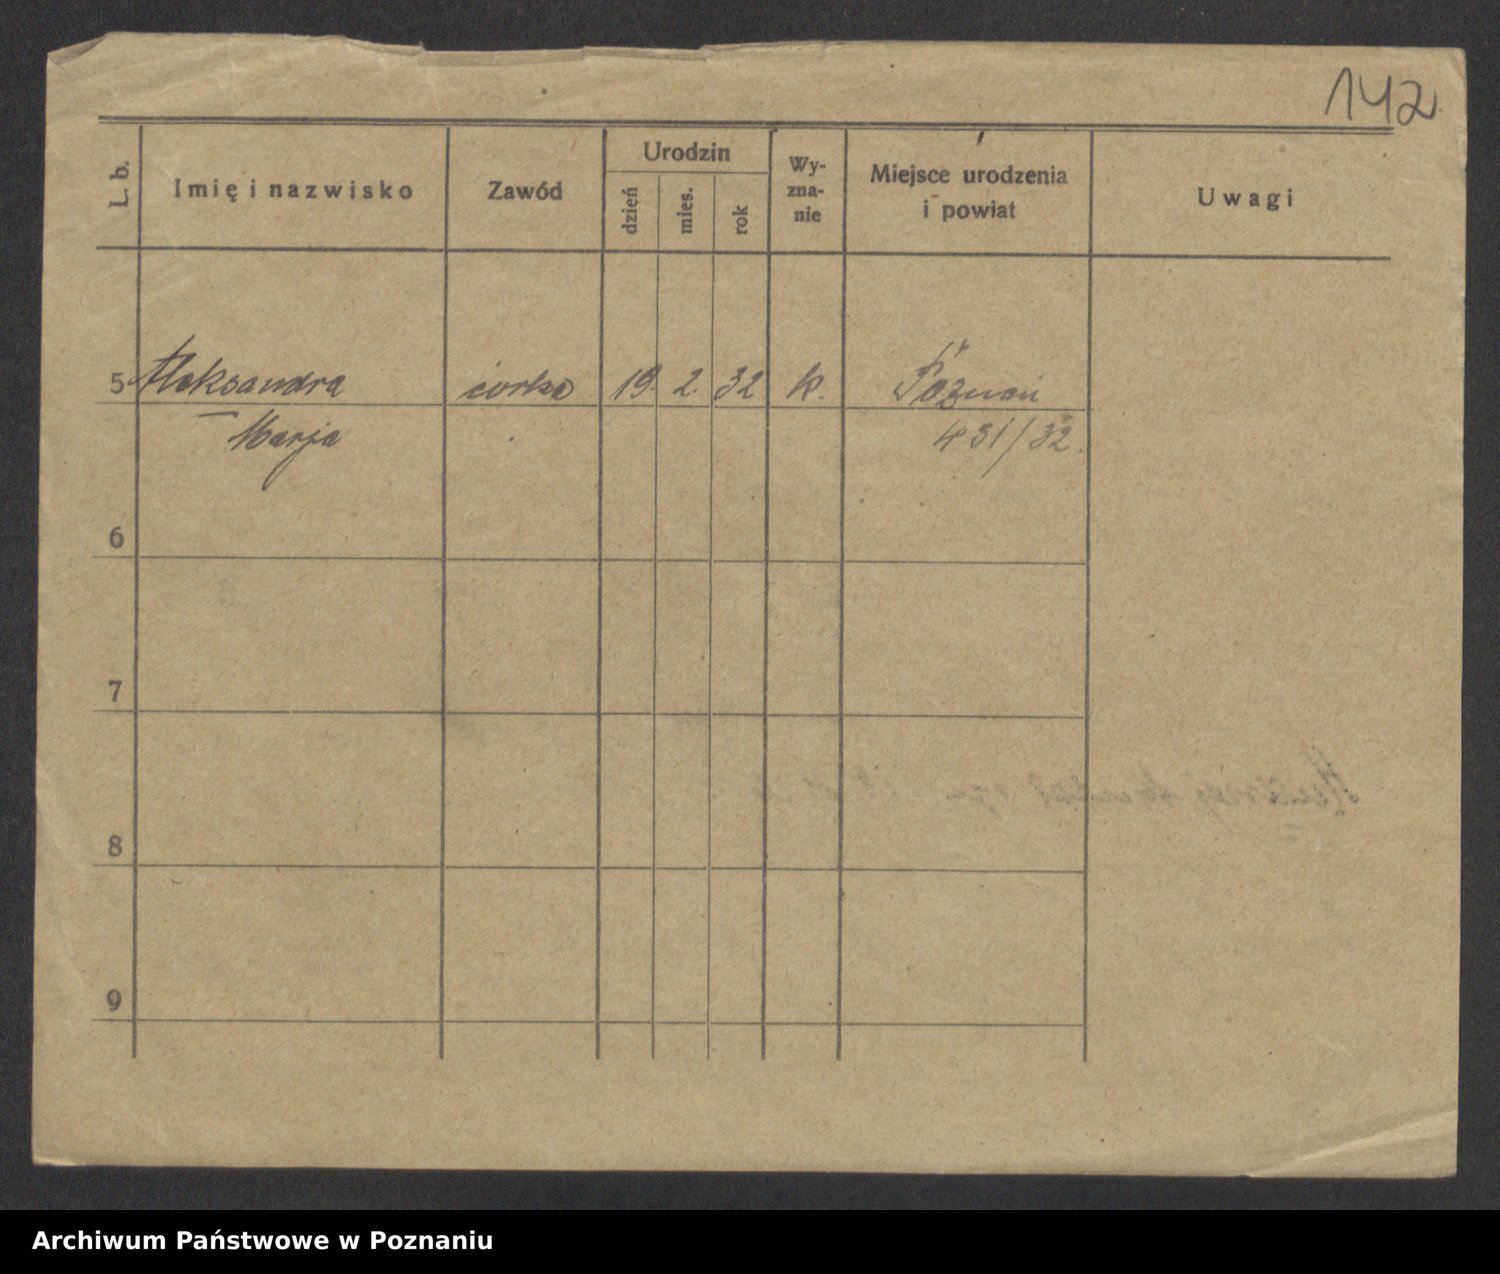 142
L. b.
Imię i nazwisko
Zawód
Urodzin
dzień
mies.
rok
Wy-
zna-
nie
Miejsce urodzenia
i powiat
Uwagi
5 Aleksandra córka 19. 2. 32 k. Poznań
Marja 431/32.
6
7
8
9
Archiwum Państwowe w Poznaniu